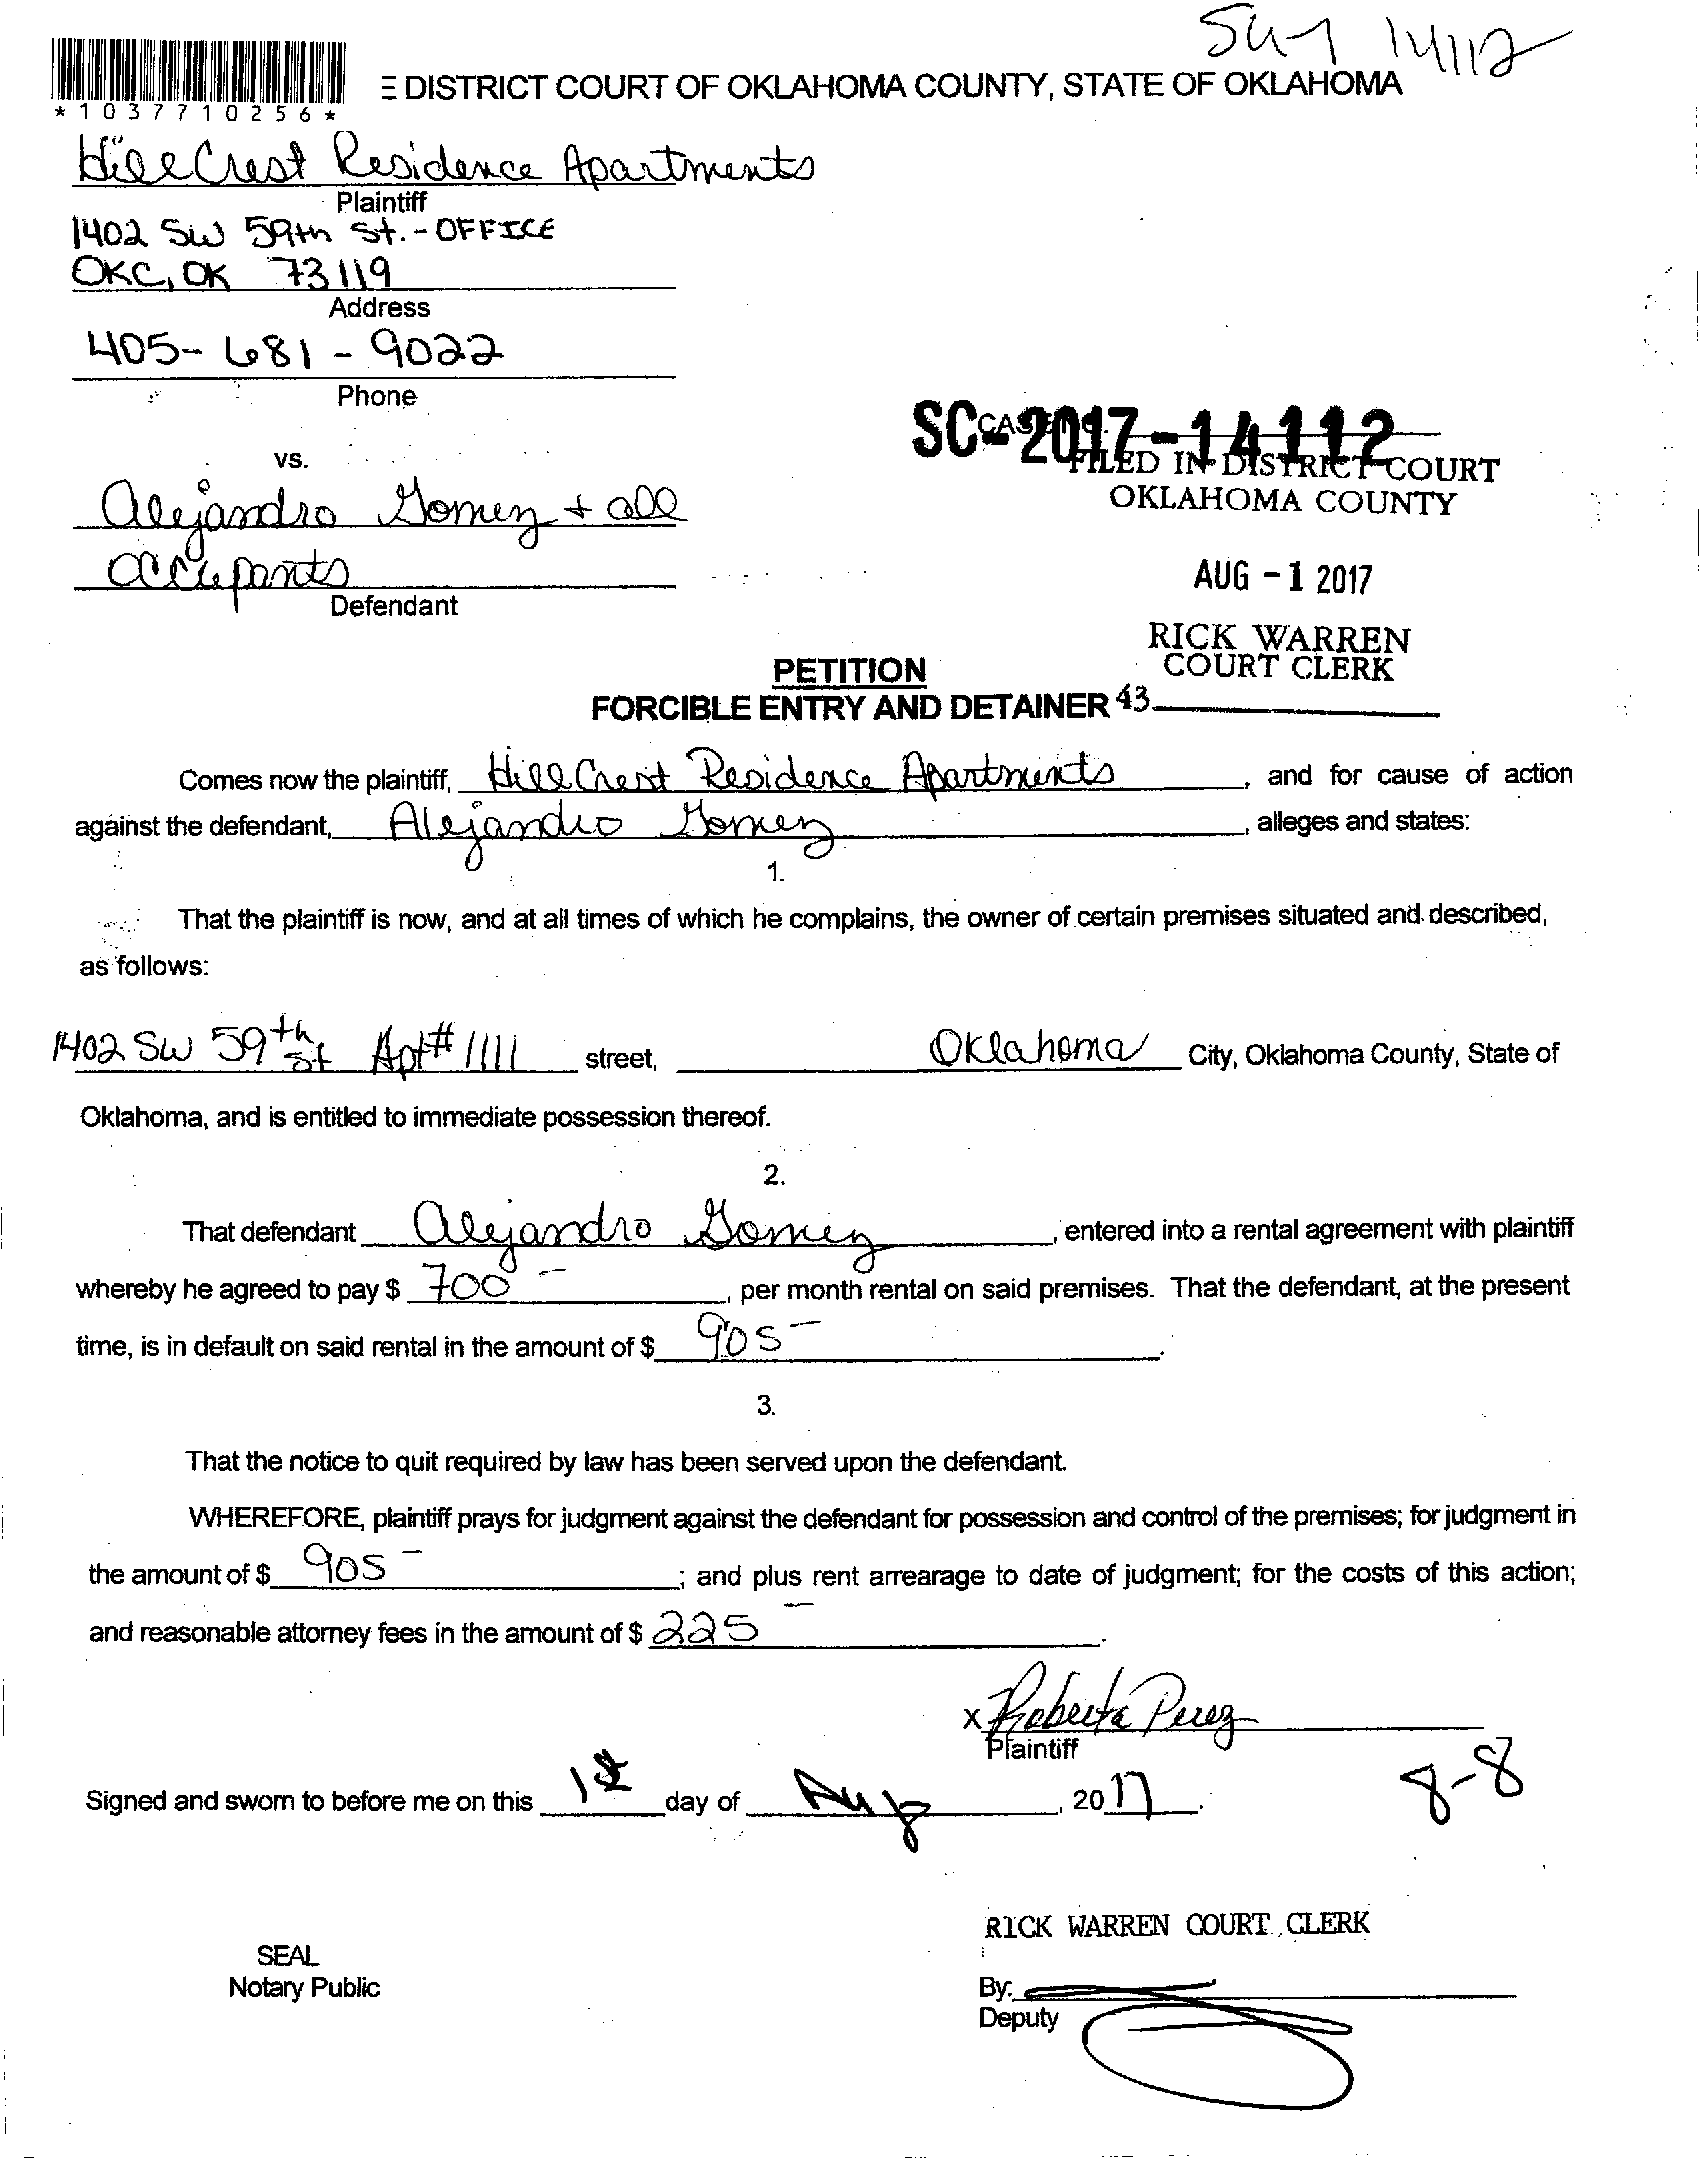 14112
DISTRICT COURT OF OKLAHOMA COUNTY, STATE OF OKLAHOMA
*1037710256*
HillCrest Residence Apartments
Plaintiff
1402 SW 59th St. - OFFICE
OKC, OK 73119
Address
405-681-9022
Phone
SC-2017-14112
vs.
FILED IN DISTRICT COURT
OKLAHOMA COUNTY
Alejandro Gomez + all
occupants
Defendant
AUG -1 2017
RICK WARREN
COURT CLERK
PETITION
FORCIBLE ENTRY AND DETAINER 43
Comes now the plaintiff, HillCrest Residence Apartments, and for cause of action
against the defendant, Alejandro Gomez, alleges and states:
1.
That the plaintiff is now, and at all times of which he complains, the owner of certain premises situated and described,
as follows:
1402 SW 59th St Apt# 1111 street, Oklahoma City, Oklahoma County, State of
Oklahoma, and is entitled to immediate possession thereof.
2.
That defendant Alejandro Gomez, entered into a rental agreement with plaintiff
whereby he agreed to pay $ 700-, per month rental on said premises. That the defendant, at the present
time, is in default on said rental in the amount of $ 905-.
3.
That the notice to quit required by law has been served upon the defendant.
WHEREFORE, plaintiff prays for judgment against the defendant for possession and control of the premises; for judgment in
the amount of $ 905-; and plus rent arrearage to date of judgment; for the costs of this action;
and reasonable attorney fees in the amount of $ 225-.
x Roberta Perez
Plaintiff
8-8
Signed and sworn to before me on this 1st day of Aug, 2017.
RICK WARREN COURT CLERK
SEAL
Notary Public
By:
Deputy